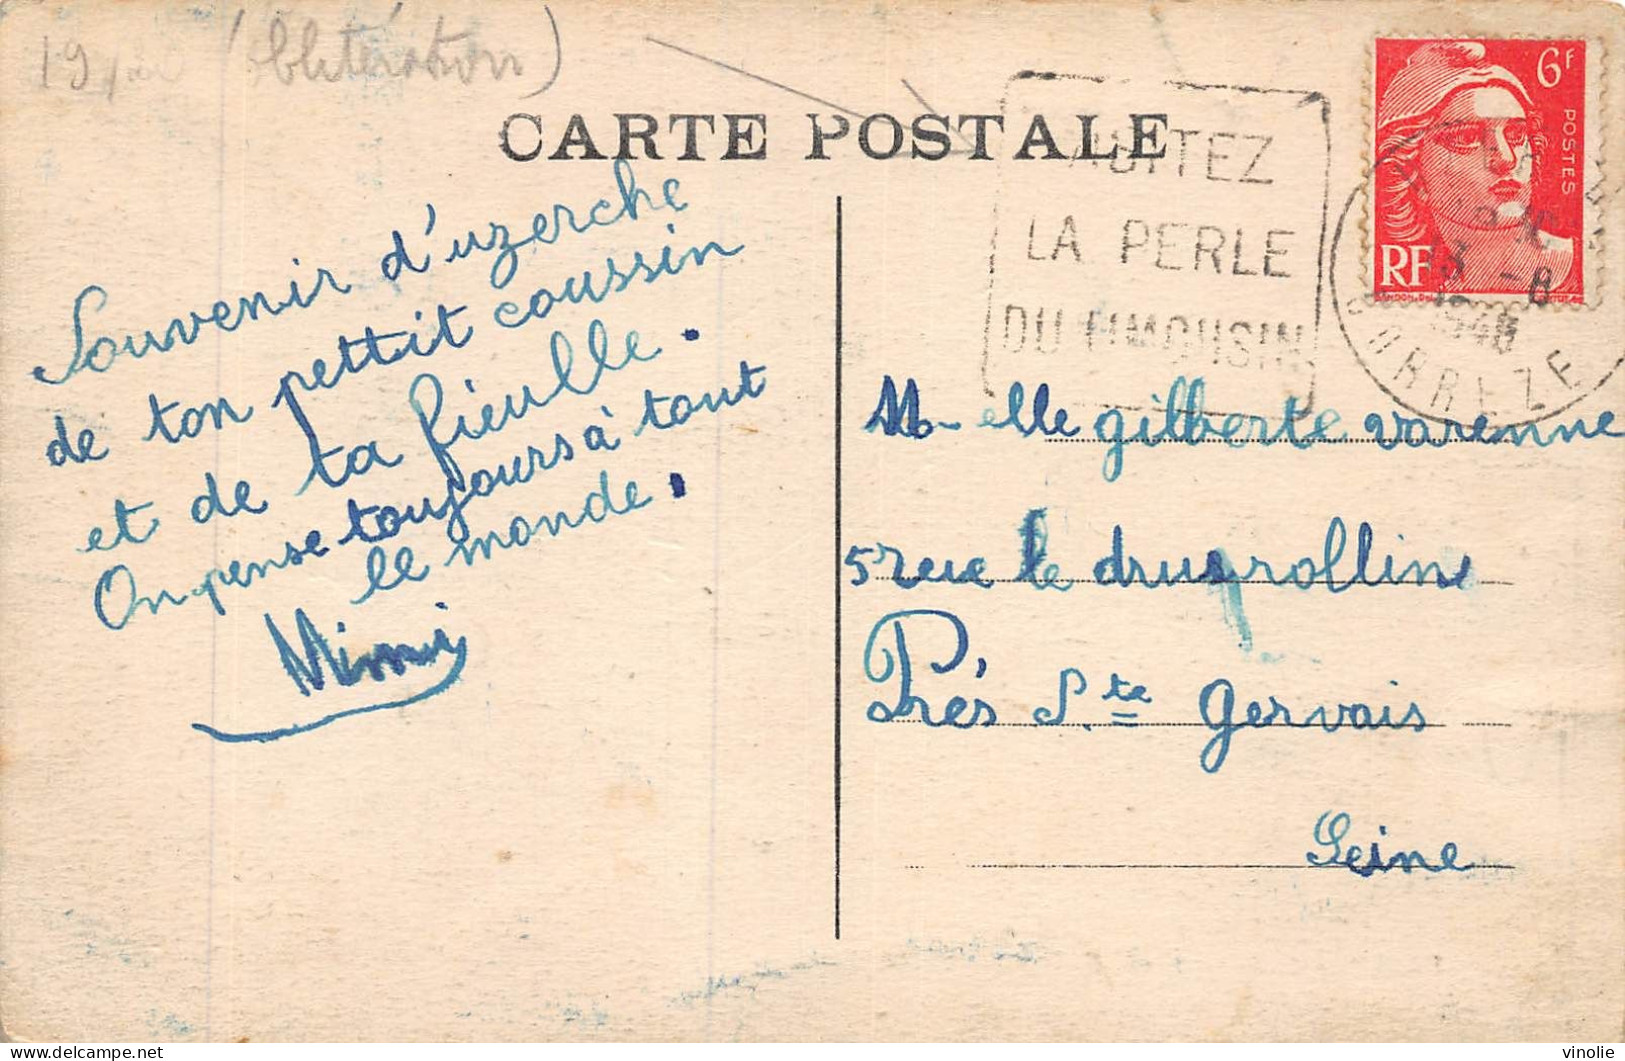 19 (oblitération)
CARTE POSTALE
VISITEZ
LA PERLE
DU LIMOUSIN
6F
POSTES
RF
13 -8
1948
CORREZE
Souvenir d'uzerche
de ton pettit coussin
et de ta fieulle.
On pense toujours à tout
le monde.
Mimi
M-elle gilberte varenne
5 rue le drus rollin
Prés S.te gervais
Seine
delcampe.net
vinolie